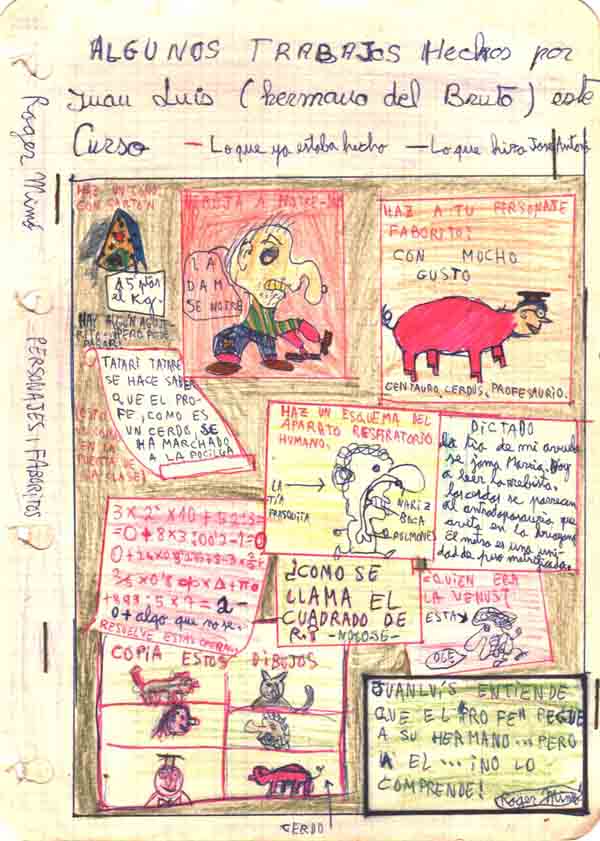 ALGUNOS TRABAJOS Hechos por
Juan Luis (hermano del Bruto) este
Curso — Lo que ya estaba hecho — Lo que hizo Jose Antonio
Roger Mimó
PERSONAJES FABORITOS
HAZ UN CONO
CON CARTÓN
A 5 ptas
el Kg.
DIBUJA A NOTRE-
LA
DAM
SE NOTRE
HAZ A TU PERSONAJE
FABORITO:
CON MOCHO
GUSTO
CENTAURO, CERDUS, PROFESAURIO.
TATARI TATARI
SE HACE SABER
QUE EL PRO-
FE, COMO ES
UN CERDO, SE
HA MARCHADO
A LA POCILGA
HAZ UN ESQUEMA DEL
APARATO RESPIRATORIO
HUMANO.
LA
TÍA
FRASQUITA
NARIZ
BOCA
PULMONES
DICTADO
la tia de mi avuelo
se jama María. Hoy
a leer la rebista.
los cerdos se parrecen
al
en la
El mitro es una uni-
dad de peso
3x2
=0+8x3:
0+
+898:5x7=2-
0+algo que no se.
RESUELVE ESTAS OPERA.
¿COMO SE
LLAMA EL
CUADRADO DE
R.? -NOLOSE-
¿QUIEN ERA
LA VENUS?
ESTA
OLE
COPIA ESTOS DIBUJOS
JUAN LUIS ENTIENDE
QUE EL PROFE PEGUE
A SU HERMANO... PERO
A EL... ¡NO LO
COMPRENDE!
Roger Mimó
CERDO